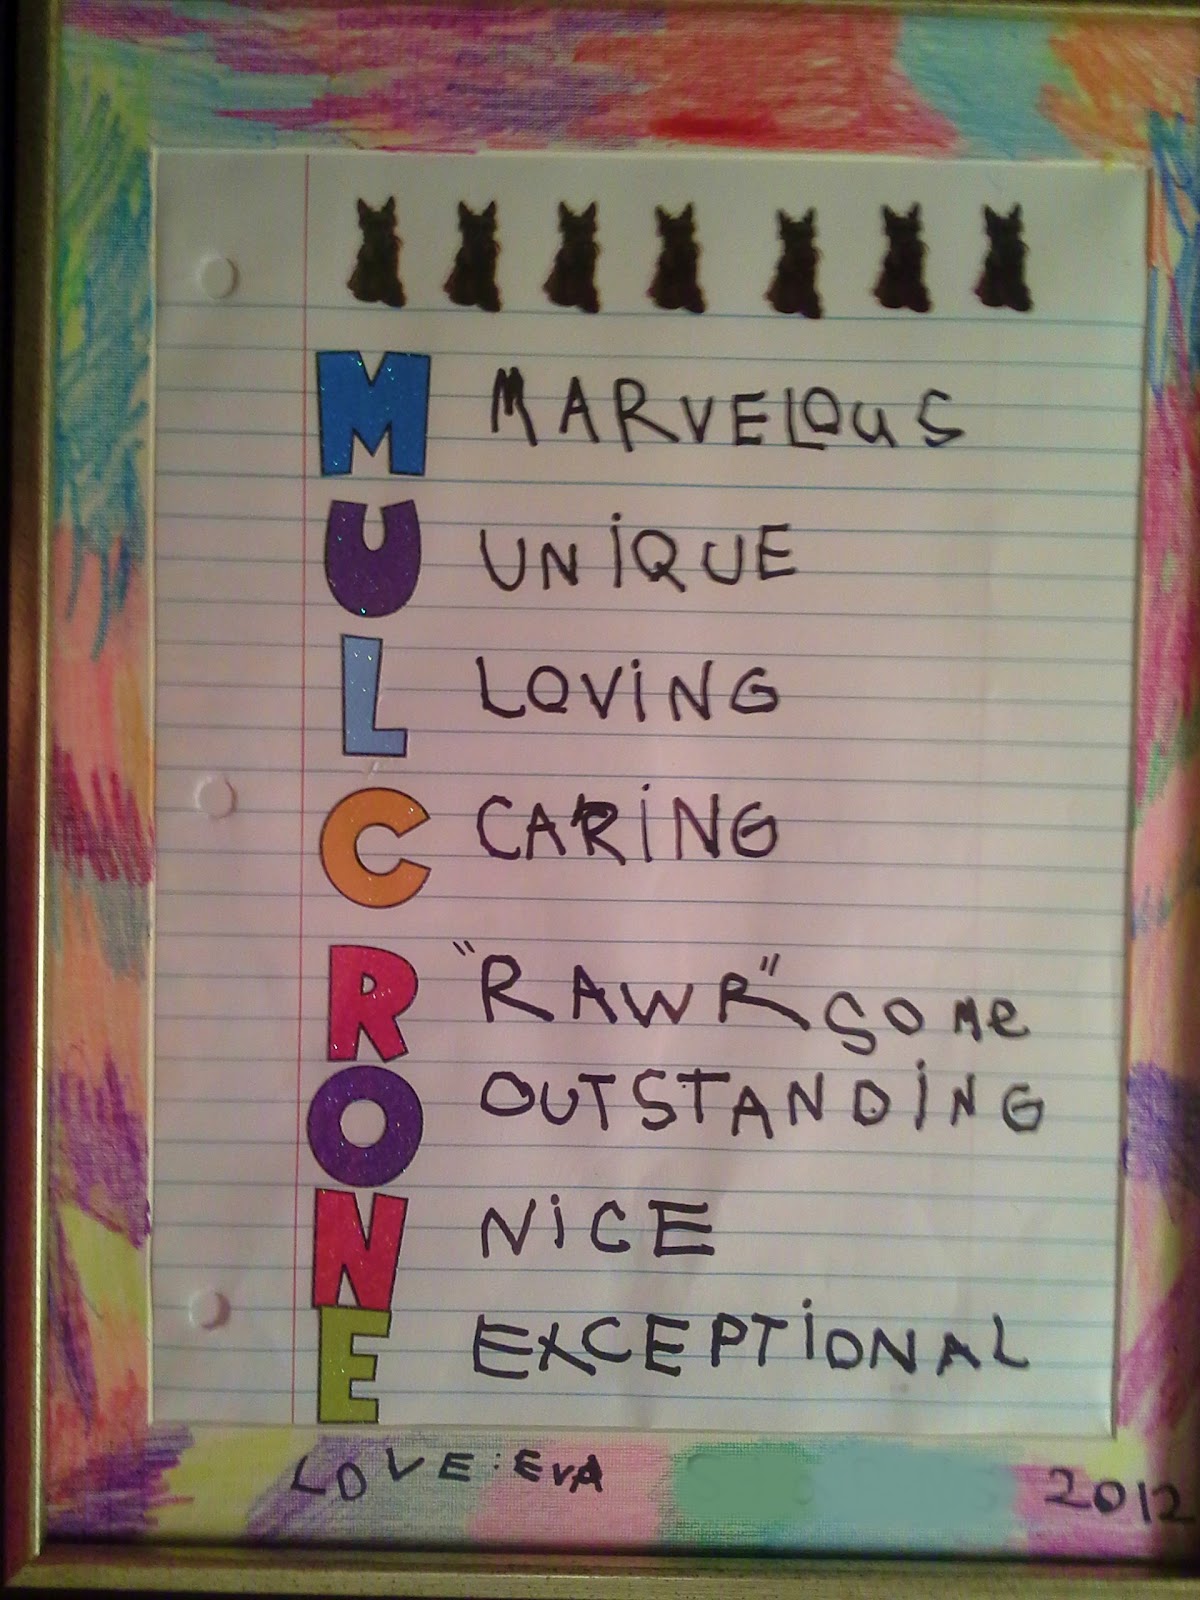 M MARVELOUS
U UNIQUE
L LOVING
C CARING
R "RAWR" SOMe
O OUTSTANDING
N NICE
E EXCEPTIONAL
LOVE: EVA 2012